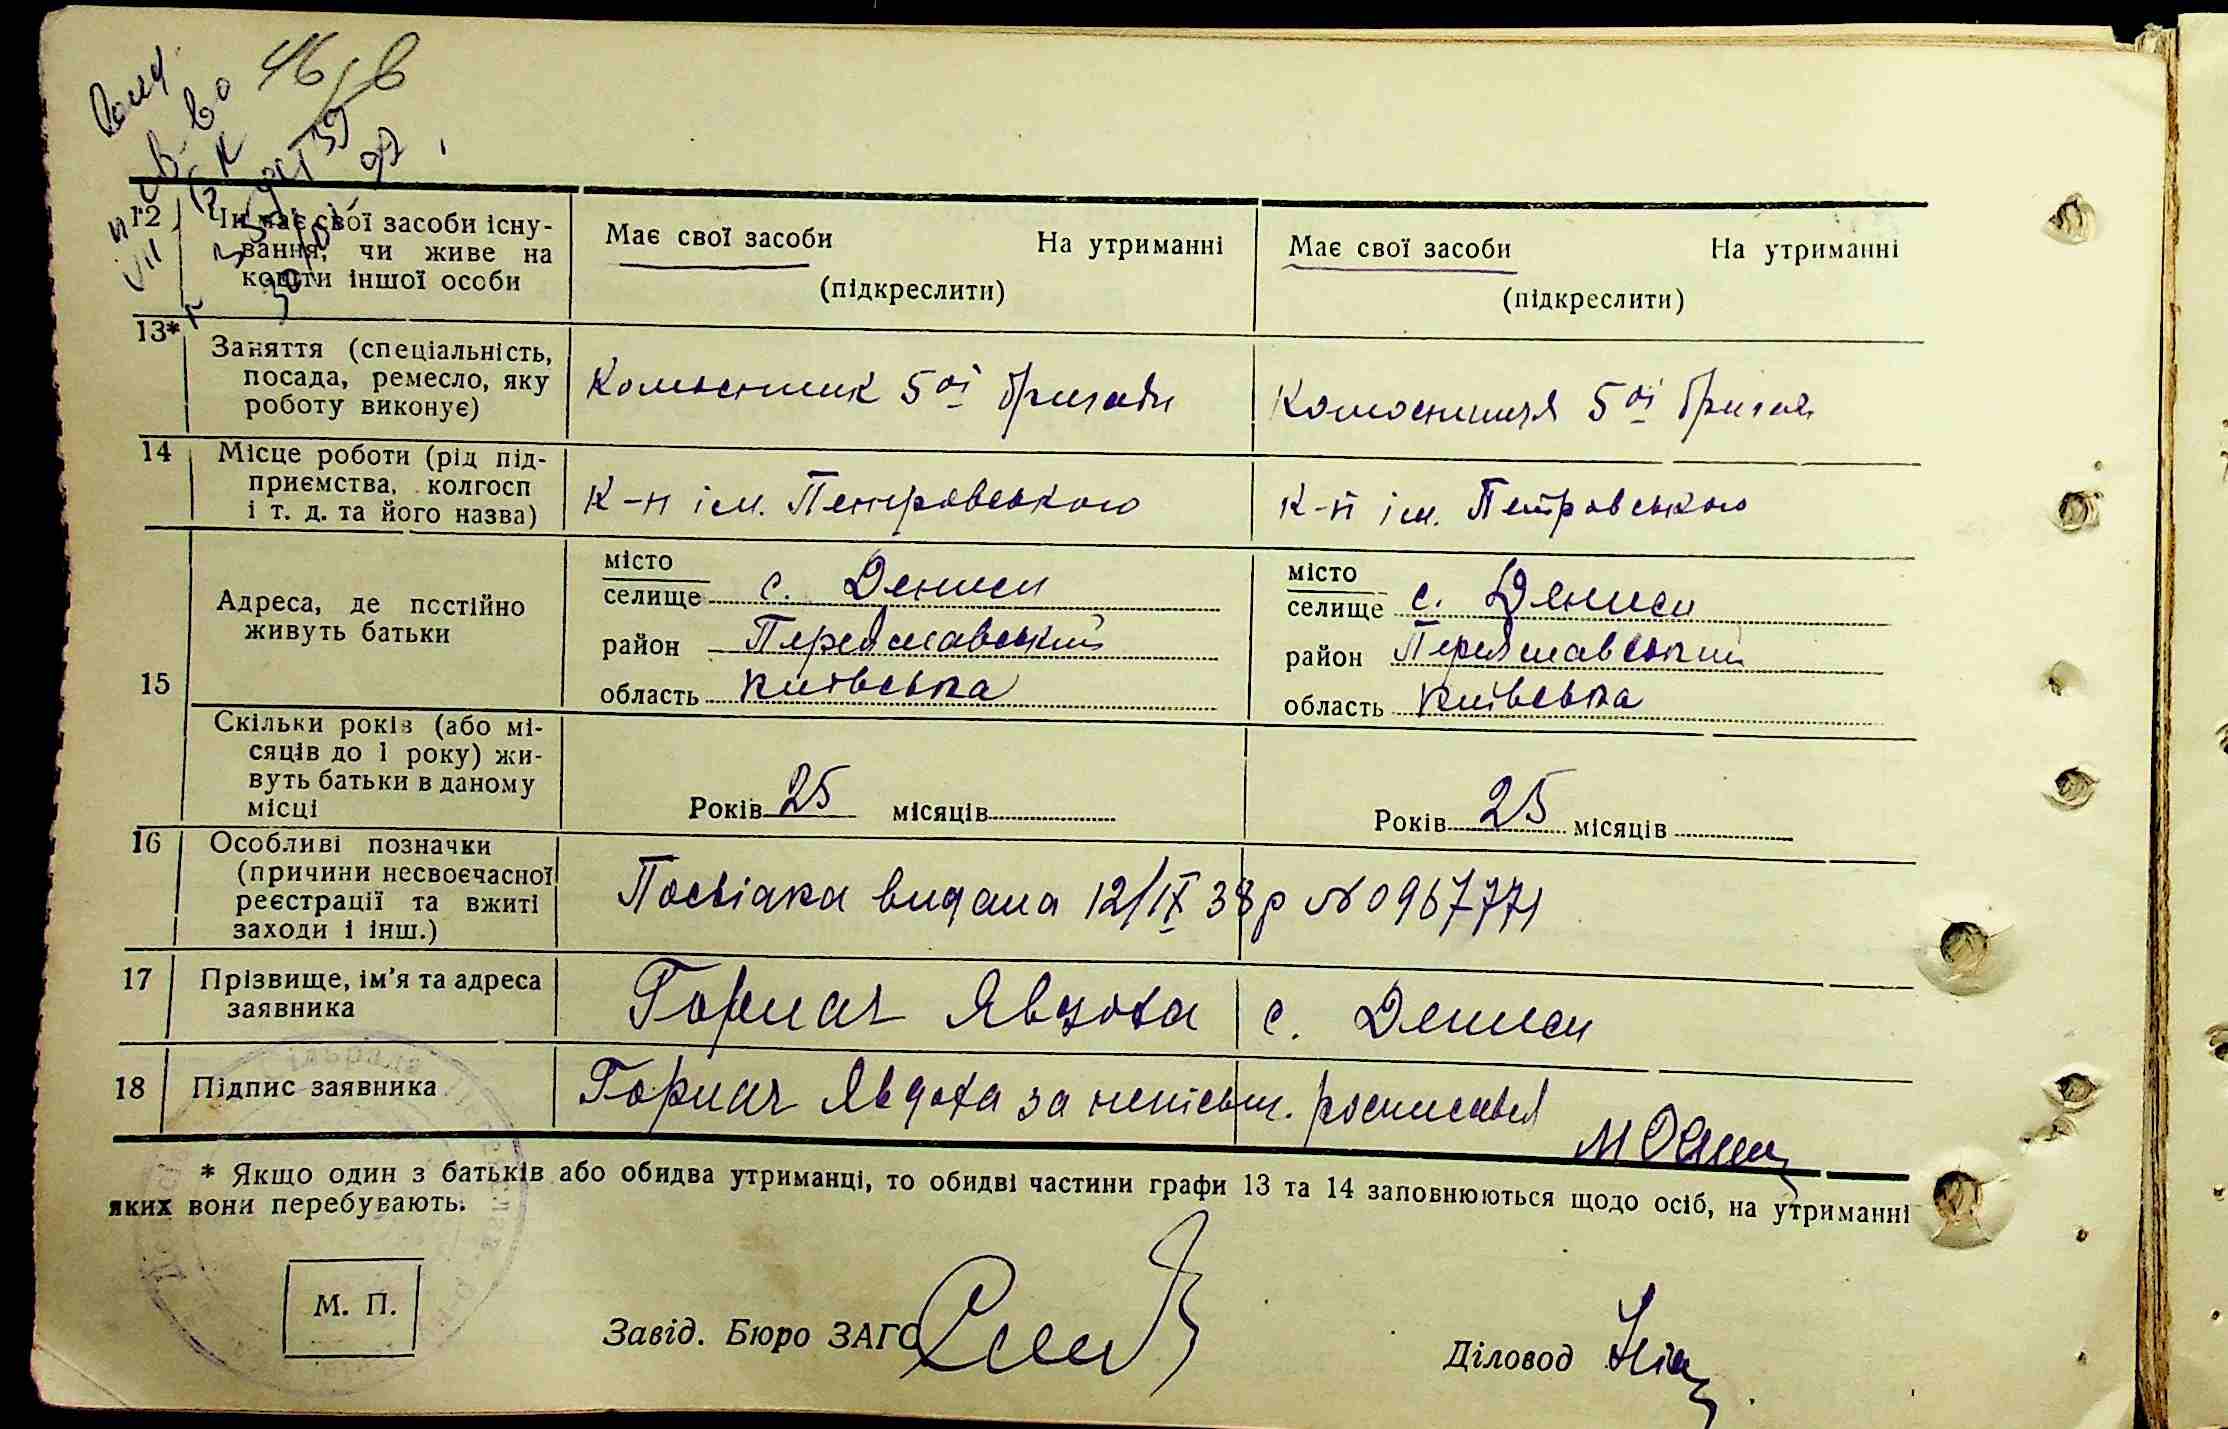 46
12 Чи має свої засоби існу-
вання, чи живе на
кошти іншої особи
Має свої засоби На утриманні
(підкреслити)
Має свої засоби На утриманні
(підкреслити)
13* Заняття (спеціальність,
посада, ремесло, яку
роботу виконує)
Колгосник 5ої бригади
Колгосниця 5ої бригади
14 Місце роботи (рід під-
приємства, колгосп
і т. д. та його назва)
К-п ім. Петровського
К-п ім. Петровського
15 Адреса, де постійно
живуть батьки
місто
селище с. Дениси
район Переяславський
область Київська
місто
селище с. Дениси
район Переяславський
область Київська
Скільки років (або мі-
сяців до 1 року) жи-
вуть батьки в даному
місці
Років 25 місяців
Років 25 місяців
16 Особливі позначки
(причини несвоєчасної
реєстрації та вжиті
заходи і інш.)
Посвідка видана 12/IX 38 р № 0967771
17 Прізвище, ім'я та адреса
заявника
Горкач Явдоха с. Дениси
18 Підпис заявника
Горкач Явдоха за неписьм. росписався
* Якщо один з батьків або обидва утриманці, то обидві частини графи 13 та 14 заповнюються щодо осіб, на утриманні
яких вони перебувають.
М. П.
Завід. Бюро ЗАГС
Діловод